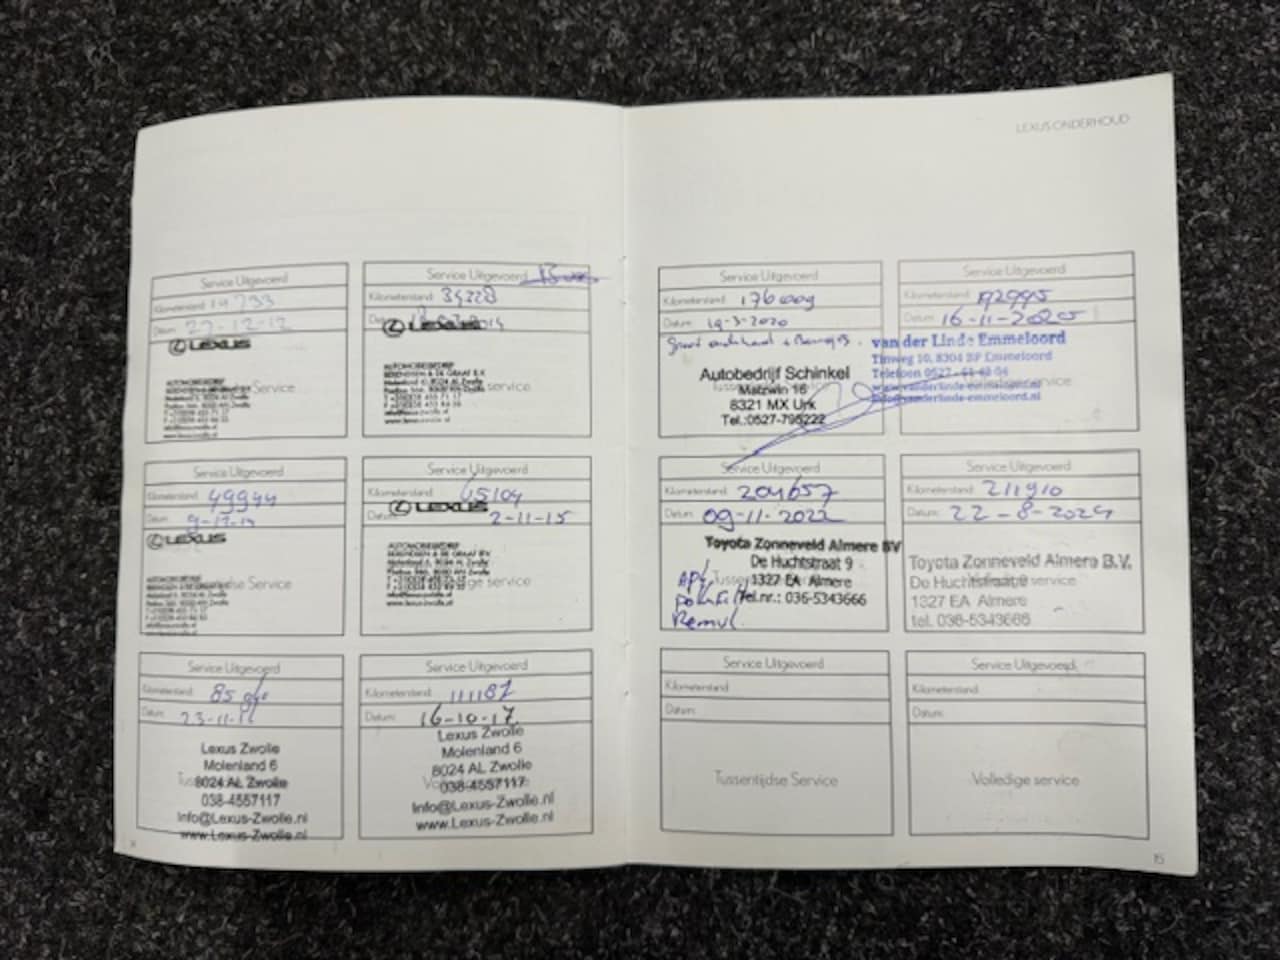 LEXUS ONDERHOUD
Service Uitgevoerd
Kilometerstand: 19 733
Datum: 27-12-12
LEXUS
AUTOMOBIELBEDRIJF
Service
Service Uitgevoerd
Kilometerstand: 34228
Datum:
LEXUS
AUTOMOBIELBEDRIJF
BERENDSEN & DE GRAAF B.V.
service
Service Uitgevoerd
Kilometerstand: 49944
Datum:
LEXUS
AUTOMOBIELBEDRIJF
Service
Service Uitgevoerd
Kilometerstand: 65104
Datum: 2-11-15
LEXUS
AUTOMOBIELBEDRIJF
BERENDSEN & DE GRAAF B.V.
service
www.lexus-zwolle.nl
Service Uitgevoerd
Kilometerstand: 85
Datum: 23-11-16
Lexus Zwolle
Molenland 6
8024 AL Zwolle
038-4557117
Info@Lexus-Zwolle.nl
www.Lexus-Zwolle.nl
Service Uitgevoerd
Kilometerstand: 111187
Datum: 16-10-17
Lexus Zwolle
Molenland 6
8024 AL Zwolle
038-4557117
Info@Lexus-Zwolle.nl
www.Lexus-Zwolle.nl
Service Uitgevoerd
Kilometerstand: 176 009
Datum: 19-3-2020
Groot onderhoud +
Autobedrijf Schinkel
Matzwin 16
8321 MX Urk
Tel.:0527-795222
Service Uitgevoerd
Kilometerstand: 192995
Datum: 16-11-2020
van der Linde Emmeloord
Timweg 10, 8304 BP Emmeloord
Telefoon 0527
www.vanderlinde-emmeloord.nl
info@vanderlinde-emmeloord.nl
Service Uitgevoerd
Kilometerstand: 204657
Datum: 09-11-2022
Toyota Zonneveld Almere BV
De Huchtstraat 9
1327 EA Almere
Tel.nr.: 036-5343666
Service Uitgevoerd
Kilometerstand: 211910
Datum: 22-8-2024
Toyota Zonneveld Almere B.V.
De Huchtstraat 9
1327 EA Almere
tel. 036-5343666
Service Uitgevoerd
Kilometerstand:
Datum:
Tussentijdse Service
Service Uitgevoerd
Kilometerstand:
Datum:
Volledige service
15